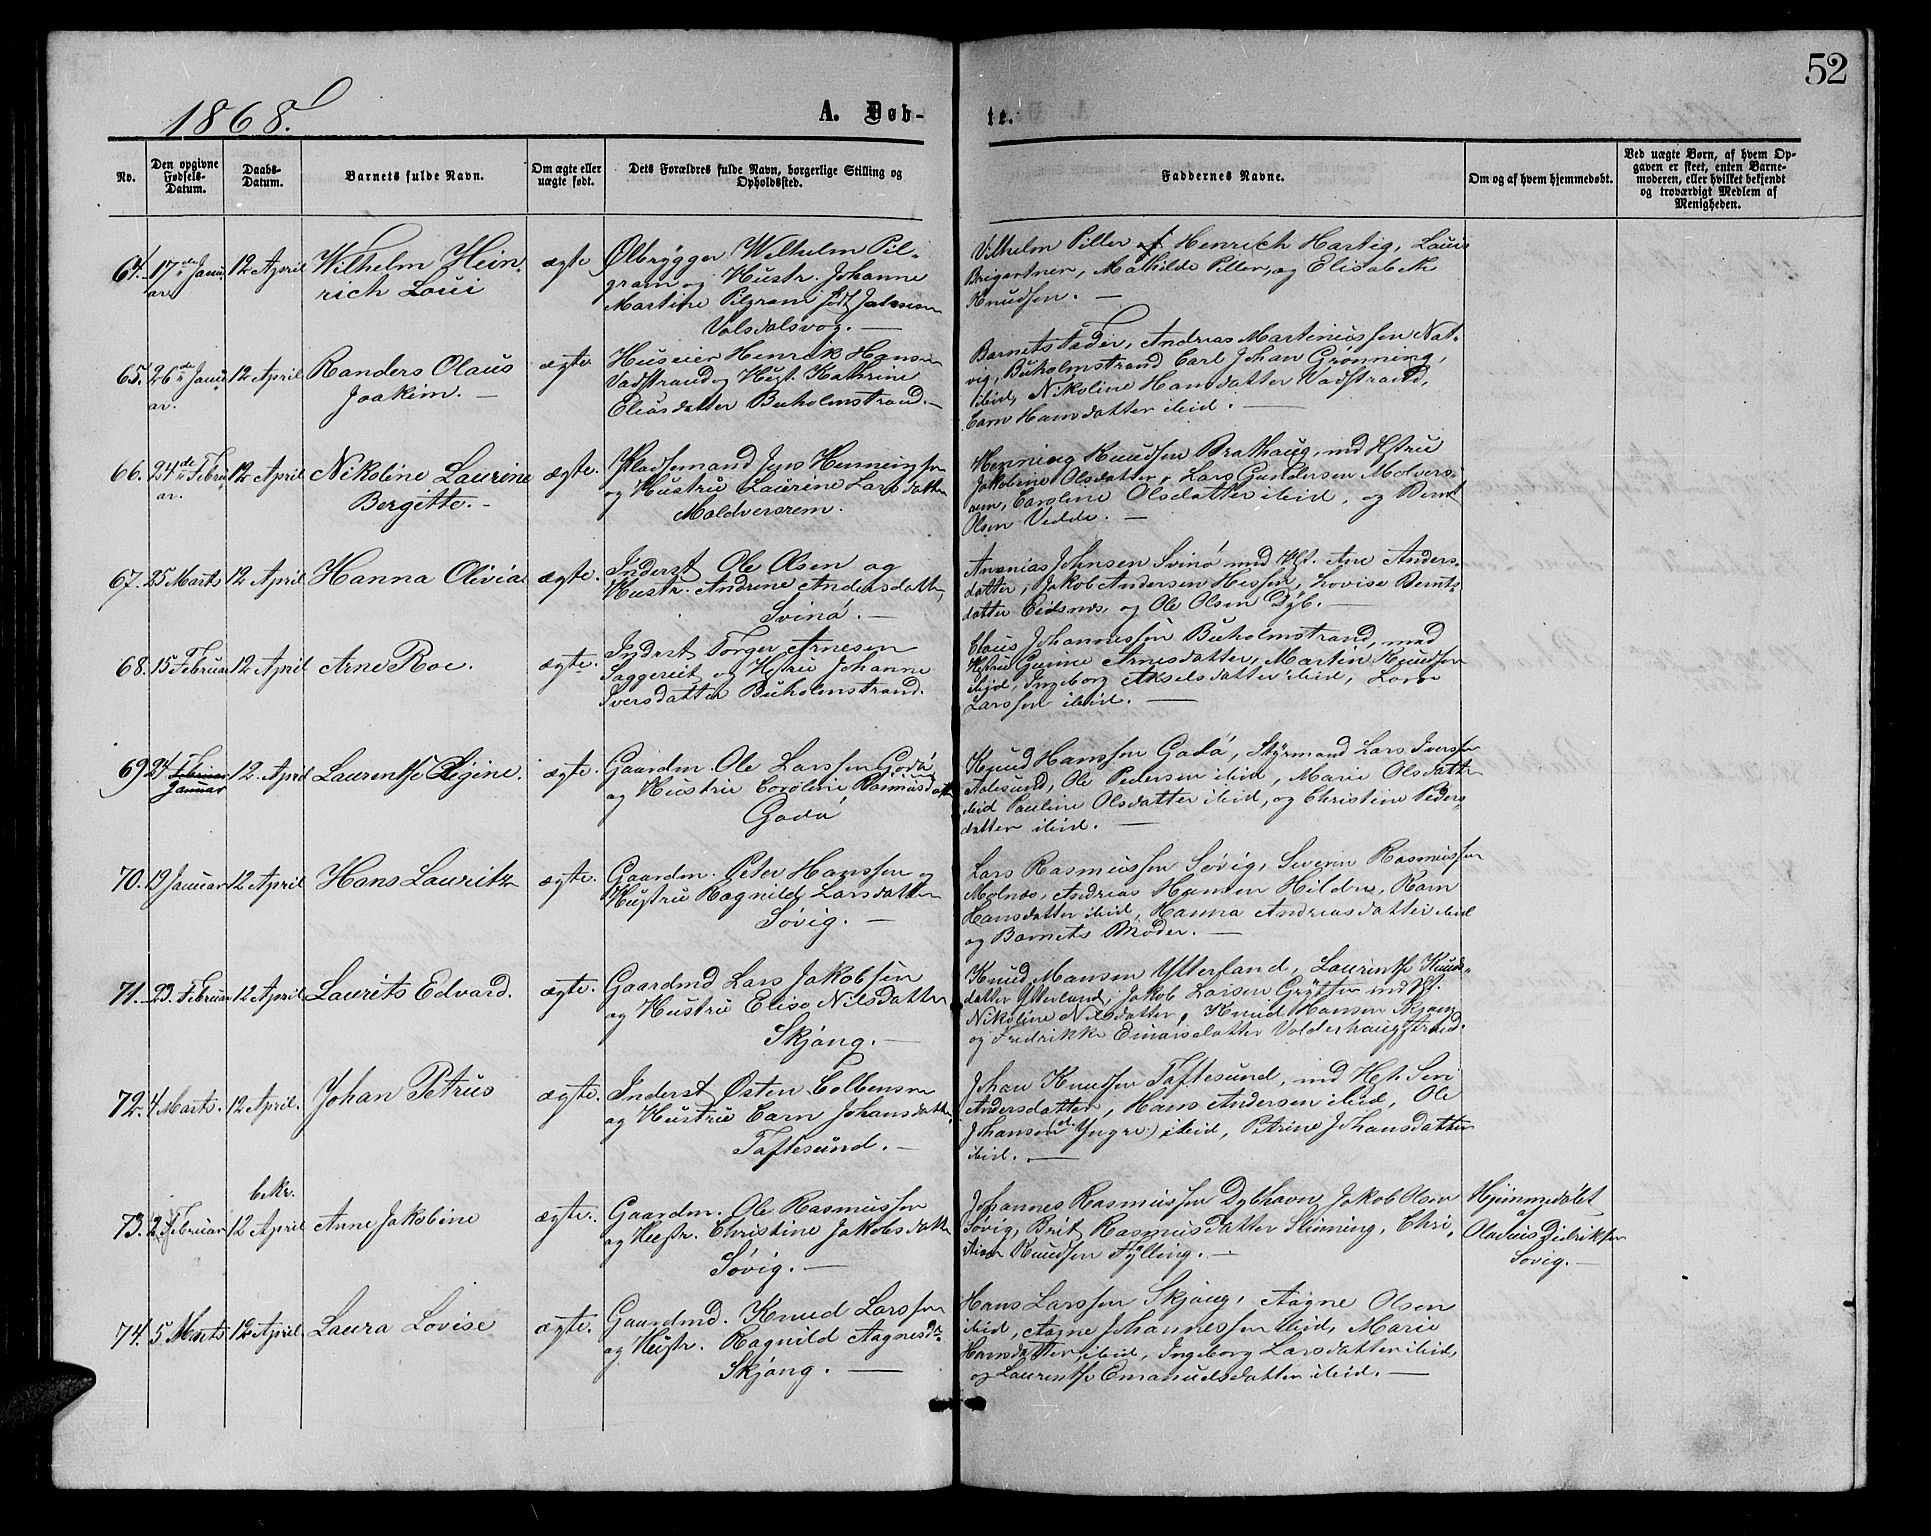 52
1868.
A. Døb-
te.
No.
Den opgivne
Fødsels-
Datum.
Daabs-
Datum.
Barnets fulde Navn.
Om ægte eller
uægte født.
Dets Forældres fulde Navn, borgerlige Stilling og
Opholdssted.
Faddernes Navne.
Om og af hvem hjemmedøbt.
Ved uægte Børn, af hvem Op-
gaven er skeet, enten Barne-
moderen, eller hvilket bekjendt
og troværdigt Medlem af
Menigheden.
64. 17de Janu-
ar 12 April
Wilhelm Hein-
rich Loui
ægte
Ølbrygger Wilhelm Pil-
gram og Hustr. Johanne
Martine Pilgram født
Volsdalsvog. —
Vilhelm Piller Henrich Hartig, Louis
Mathilde Piller, og Elisabeth
Knudsen. —
65. 26de Janu-
ar. 12 April
Randers Olaus
Joakim. —
ægte
Huseier Henrik Hansen
Vadstrand og Hust. Kathrine
Eliasdatter Buholmstrand. —
Barnets Fader, Andreas Martinussen Nat-
vig, Buholmstrand Carl Johan Grønning,
ibid, Nikoline Hansdatter Vadstrand,
Carn Hansdatter ibid. —
66. 24de Febru-
ar. 12 April
Nikoline Laurine
Bergitte. —
ægte.
Pladsemand Jens Henningsen
og Hustru Laurine Larsdatter
Moldversrem.
Henning Knudsen Brathaug, med Hstru
Jakobine Olsdatter, Lars Gundersen Molvers-
rem, Caroline Olsdatter ibid, og Bernt
Olsen Vedde. —
67. 25 Marts 12 April
Hanna Olivia
ægte.
Inderst Ole Olsen og
Hustr. Andrine Andersdatter,
Svinø. —
Ananias Johnsen Svinø med Hst. Ane Anders-
datter, Jakob Andersen Hessen, Lovise Bernts-
datter Eidsnæs, og Ole Olsen Dyb. —
68. 15 Februar 12 April
Arne Roe.
ægte.
Inderst Torger Arnesen
og Hstru Johanne
Iversdatter Buholmstrand.
Claus Johannessen Buholmstrand, med
Hstru Gurine Arnesdatter, Martin Knudsen
ibid, Ingeborg Akselsdatter ibid, Lars
Larssen ibid. —
69 24 Februar
Januar 12. April
Laurentse Regine.
ægte.
Gaardm. Ole Larssen Godø
og Hustru Caroline Rasmusdatt
Godø
Knud Hanssen Godø, Styrmand Lars Iverssen
Aalesund, Ole Pedersen ibid, Marie Olsdatter
ibid Pauline Olsdatter ibid, og Christine Peders-
datter ibid. —
70. 19 Januar 12 April
Hans Lauritz
ægte.
Gaardm. Peter Hanssen og
Hustru Ragnild Larsdatter
Søvig. —
Lars Rasmussen Søvig, Severin Rasmussen
Molnæs, Andreas Hansen Hildre, Karn
Hansdatter ibid, Hanna Andreasdatter ibid
og Barnets Moder. —
71. 23. Februar 12 April
Laurits Edvard.
ægte.
Gaardmd Lars Jakobsen
og Hustru Elise Nilsdatter
Skjong. —
Knud Hansen Ytterland, Laurentse Knuds-
datter Ytterland, Jakob Larsen Gryttøen med Hst.
Nikoline Nilsdatter, Knud Hansen Skjong
og Fredrikke Einarsdatter Valderhaugstrand.
72. 4 Marts. 12 April.
Johan Petrus
ægte.
Inderst Østen Colbensen
og Hustru Carn Johansdatter,
Taftesund. —
Johan Knudsen Taftesund, med Hst. Siri
Andersdatter, Hans Andersen ibid, Ole
Johansen (d. Yngre) ibid, Petrine Johansdatter
ibid. —
bekr.
73. 2 Februar 12 April
Anne Jakobine
ægte.
Gaardm. Ole Rasmussen
og Hustr. Christine Jakobsdatter
Søvig. —
Johannes Rasmussen Dybhavn, Jakob Olsen
Søvig, Brit Rasmusdatter Slinning, Chri-
Knudsen Fylling. —
Hjemmedøbt
af
Olaus Didriksen
Søvig. —
74. 5 Marts 12 April
Laura Lovise
ægte.
Gaardmd. Knud Larssen
og Hustr. Ragnild Aagesd.
Skjong. —
Hans Larssen Skjong, Aagne Olsen
ibid, Aagne Johannessen ibid, Marie
Hansdatter, ibid, Ingeborg Larsdatter ibid,
og Laurentse Emanuelsdatter ibid. —